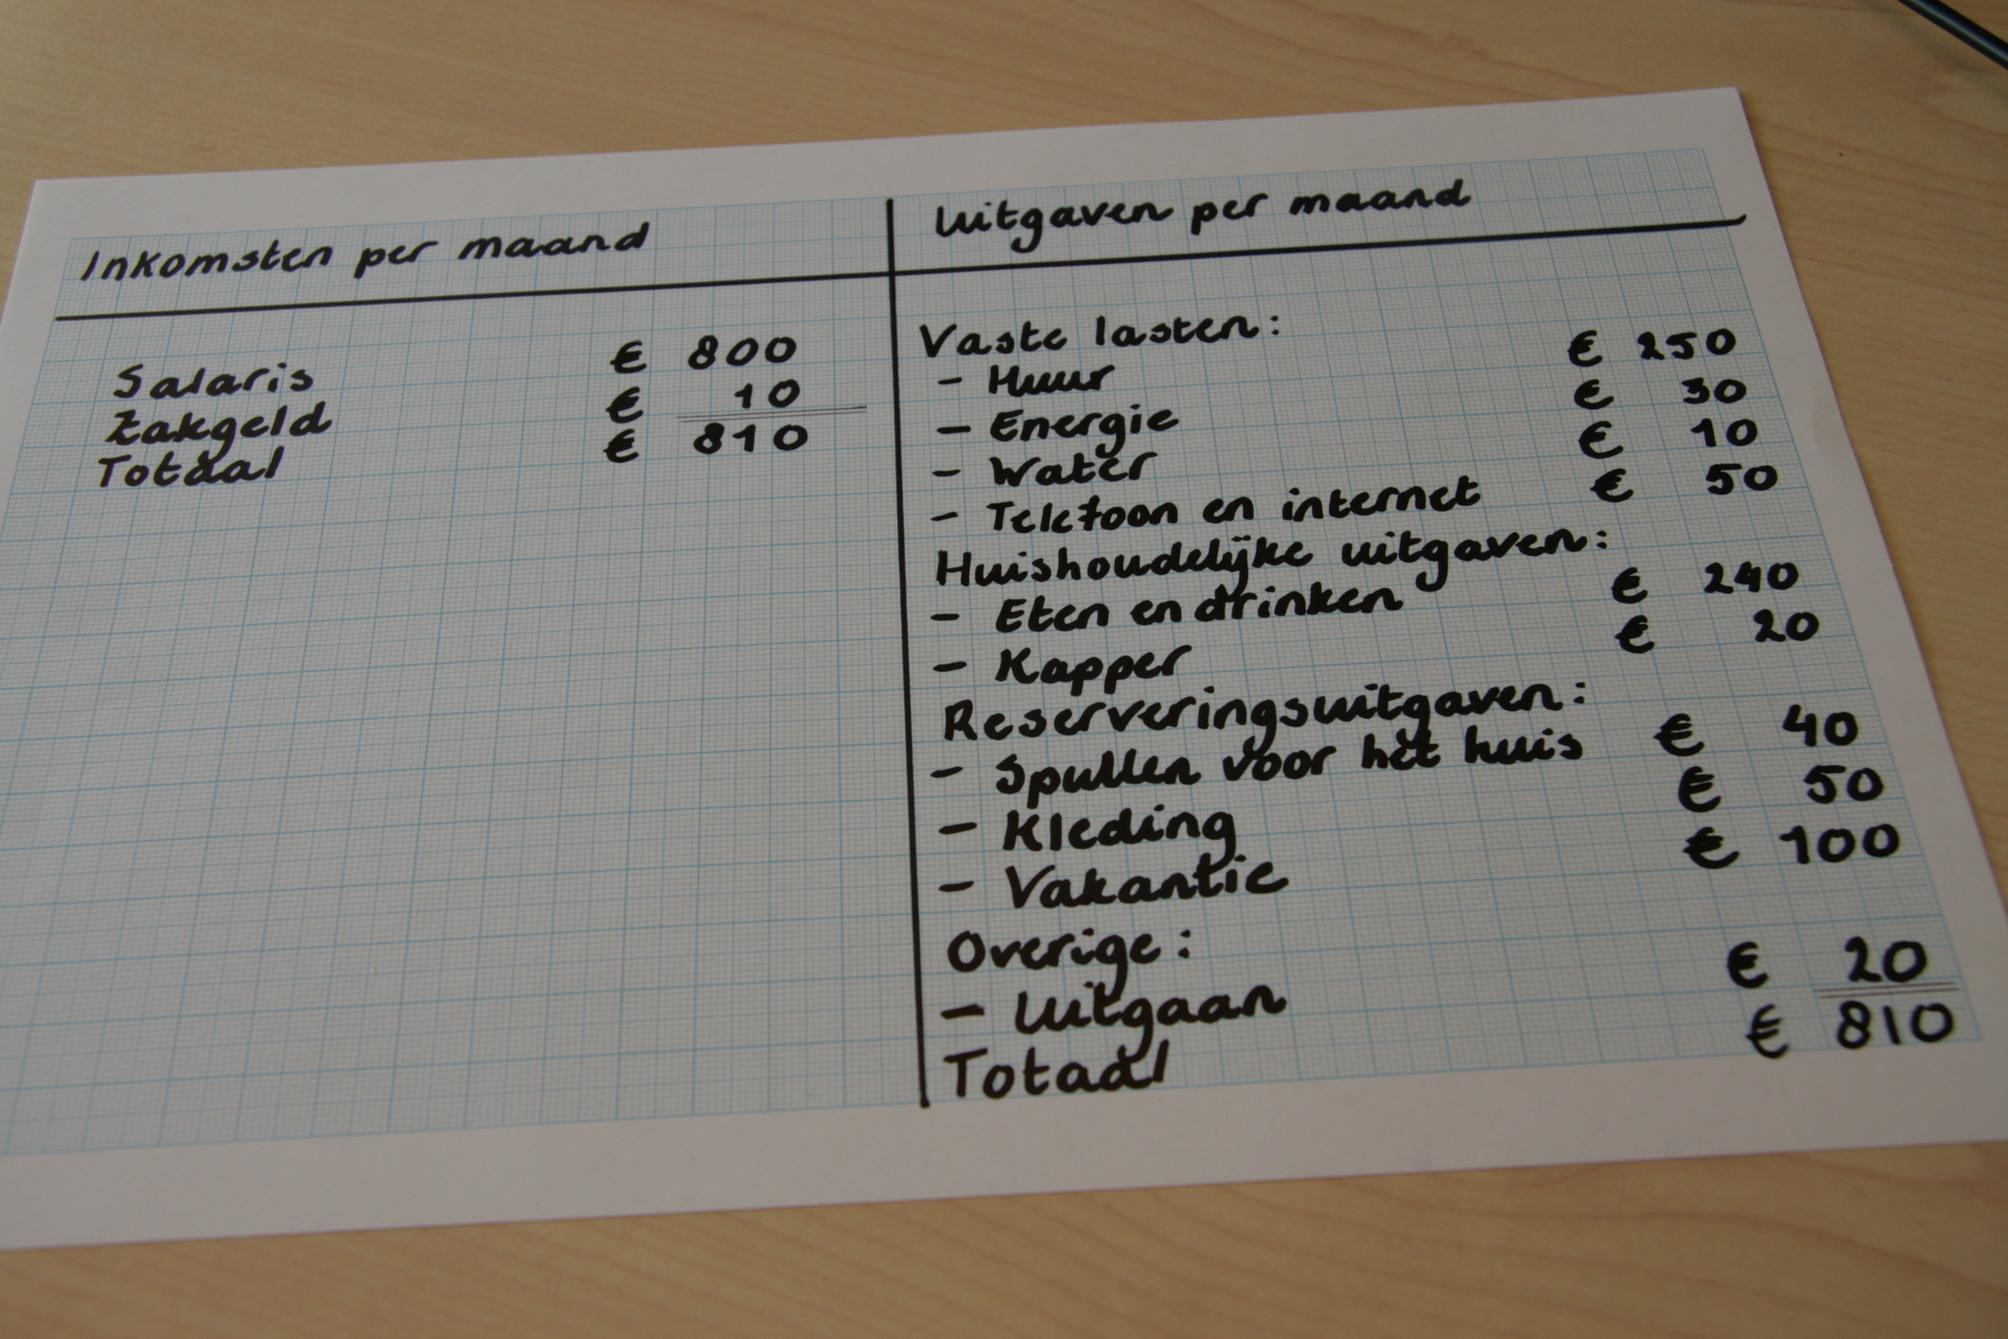 Inkomsten per maand
Salaris € 800
Zakgeld € 10
Totaal € 810
Uitgaven per maand
Vaste lasten:
- Huur € 250
- Energie € 30
- Water € 10
- Telefoon en internet € 50
Huishoudelijke uitgaven:
- Eten en drinken € 240
- Kapper € 20
Reserveringsuitgaven:
- Spullen voor het huis € 40
- Kleding € 50
- Vakantie € 100
Overige:
- Uitgaan € 20
Totaal € 810